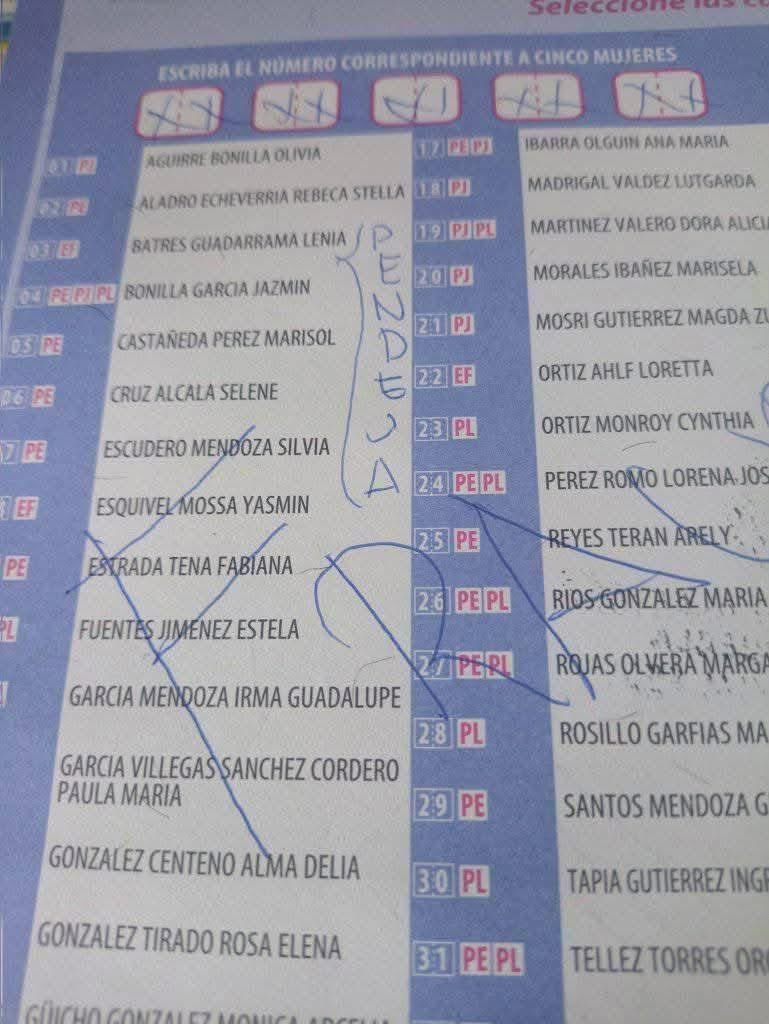 Seleccione las
ESCRIBA EL NÚMERO CORRESPONDIENTE A CINCO MUJERES
01 PJ AGUIRRE BONILLA OLIVIA
02 PL ALADRO ECHEVERRIA REBECA STELLA
03 EF BATRES GUADARRAMA LENIA
04 PE PJ PL BONILLA GARCIA JAZMIN
05 PE CASTAÑEDA PEREZ MARISOL
06 PE CRUZ ALCALA SELENE
7 PE ESCUDERO MENDOZA SILVIA
EF ESQUIVEL MOSSA YASMIN
PE ESTRADA TENA FABIANA
PL FUENTES JIMENEZ ESTELA
GARCIA MENDOZA IRMA GUADALUPE
GARCIA VILLEGAS SANCHEZ CORDERO
PAULA MARIA
GONZALEZ CENTENO ALMA DELIA
GONZALEZ TIRADO ROSA ELENA
GÜICHO GONZALEZ MONICA ARCELIA
PENDEJA
17 PE PJ IBARRA OLGUIN ANA MARIA
18 PJ MADRIGAL VALDEZ LUTGARDA
19 PJ PL MARTINEZ VALERO DORA ALICIA
20 PJ MORALES IBAÑEZ MARISELA
21 PJ MOSRI GUTIERREZ MAGDA ZU
22 EF ORTIZ AHLF LORETTA
23 PL ORTIZ MONROY CYNTHIA
24 PE PL PEREZ ROMO LORENA JOS
25 PE REYES TERAN ARELY
26 PE PL RIOS GONZALEZ MARIA
27 PE PL ROJAS OLVERA MARGA
28 PL ROSILLO GARFIAS MA
29 PE SANTOS MENDOZA G
30 PL TAPIA GUTIERREZ INGR
31 PE PL TELLEZ TORRES OR